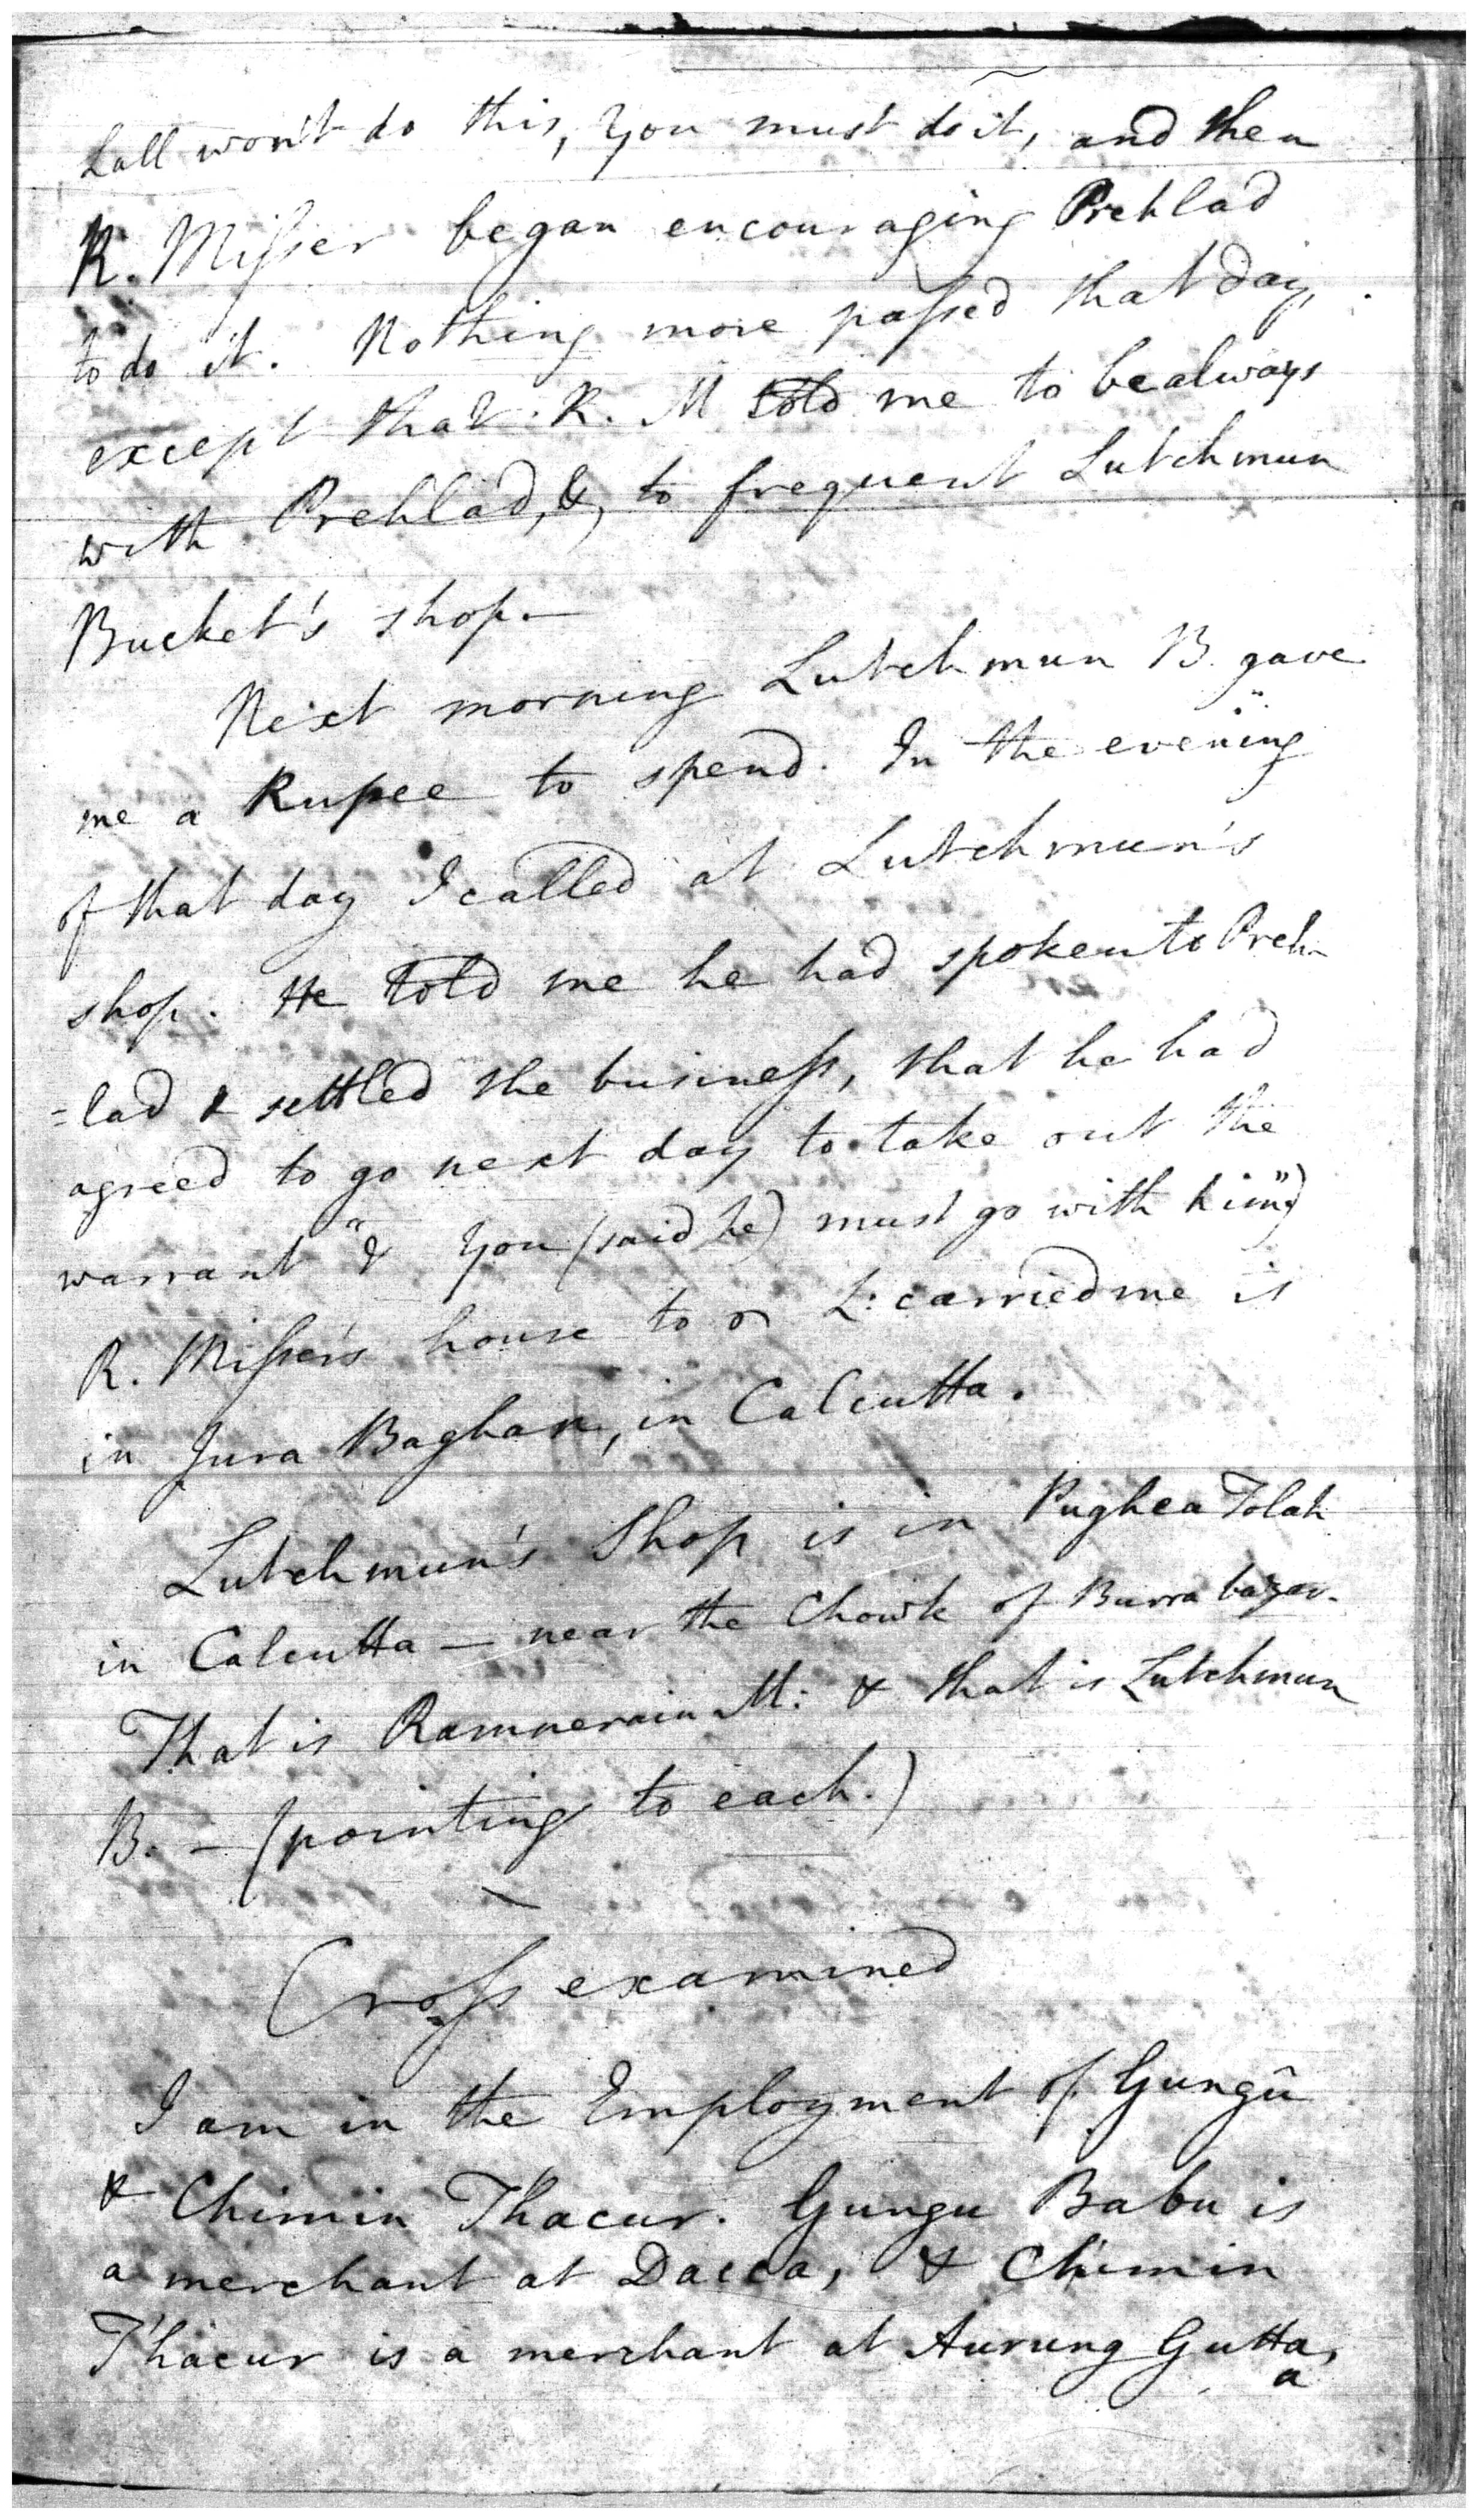 Lall won't do this, you must do it, and then
R. Misser began encouraging Prehlad
to do it. Nothing more passed that day,
except that R. M told me to be always
with Prehlad, & to frequent Lutchmun
Bucket's shop. —
Next morning Lutchmun B. gave
me a Rupee to spend. In the evening
of that day I called at Lutchmun's
shop. He told me he had spoken to Preh-
=lad & settled the business, that he had
agreed to go next day to take out the
warrant "& you (said he) must go with him"
R. Misser's house to L: carried me is
in Jura Baghan, in Calcutta.
Lutchmun's Shop is in Pughea Tolah
in Calcutta — near the Chowk of Burra bazar.
That is Ramnerain M: & that is Lutchmun
B. — (pointing to each.)
Cross examined
I am in the Employment of Gungû
& Chimin Thacur. Gungu Babu is
a merchant at Dacca, & Chimin
Thacur is a merchant at Aurung Gutta,
a